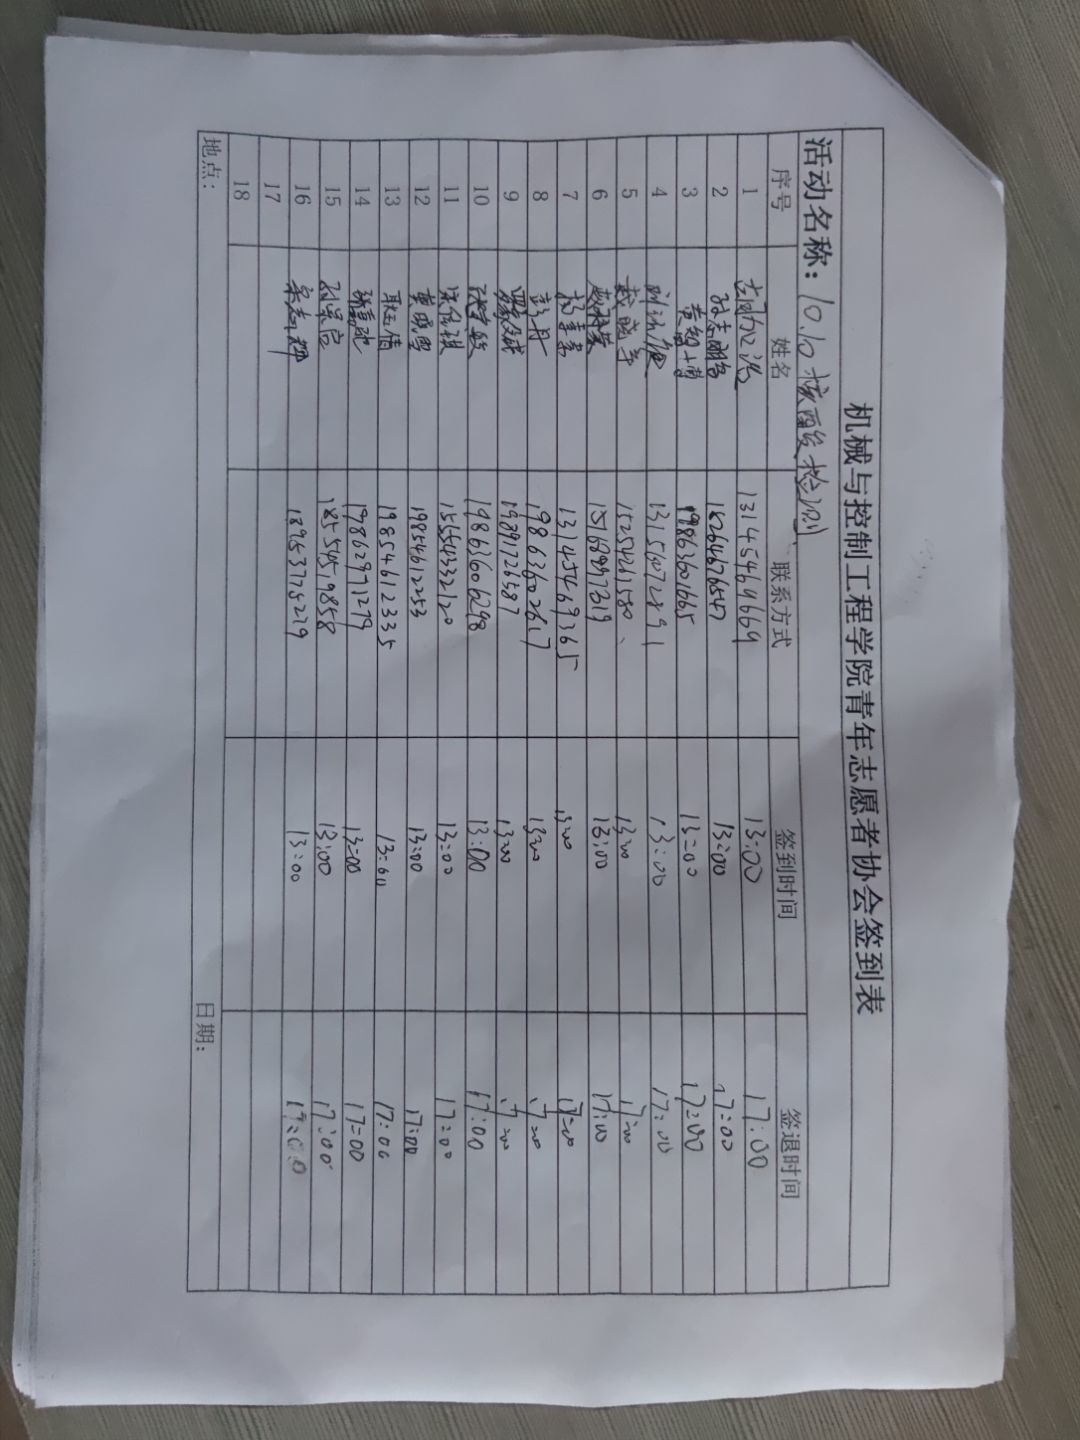 机械与控制工程学院青年志愿者协会签到表
活动名称：10.10核酸检测
序号 姓名 联系方式 签到时间 签退时间
1 13145464669 13:00 17:00
2 孙志鹏 18264676547 13:00 17:00
3 黄智博 19863601665 13:00 17:00
4 13156072891 13:00 17:00
5 戴晓华 15254261580 13:00 17:00
6 15169897319 13:00 17:00
7 杨青青 13145469365 13:00 17:00
8 彭丹 19863602617 13:00 17:00
9 19891726587 13:00 17:00
10 19863606298 13:00 17:00
11 15654332120 13:00 17:00
12 黄晓雪 19854612253 13:00 17:00
13 耿玉倩 19854612335 13:00 17:00
14 19862971279 13:00 17:00
15 孙景启 18554519858 13:00 17:00
16 宋志辉 18953178279 13:00 17:00
17
18
地点： 日期：